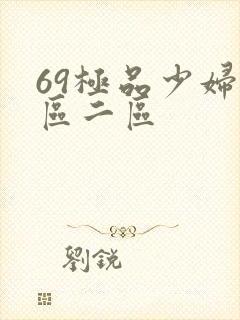 69極品少婦
區二區
劉銳